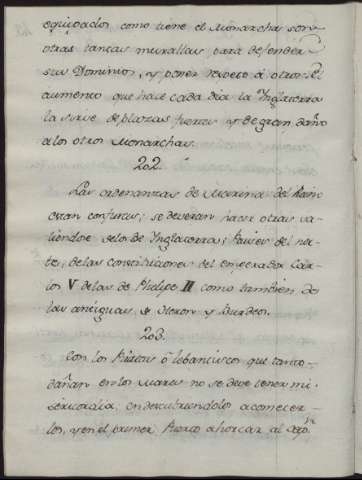 equipados como tiene el Monarcha son
otras tantas murallas para defender
sus Dominios, y poner respeto á otros: el
aumento que hace cada dia la Ynglaterra
la sirve de plazas fuertes y de gran daño
a los otros Monarchas.
202.
Las ordenanzas de Marina del Ramo
estan confusas; se deveran hacer otras va-
liendose de los de Ynglaterra; Paises del nor-
te; de las constituciones del emperador Car-
los V de las de Phelipe II como tambien de
las antiguas, de Oleron y Burdeos.
203.
Con los Piratas ô lebantiscos que tanto
dañan en los mares no se deve tener mi-
sericordia; en descubriendolos acometer-
los, y en el primer Puerto ahorcar al Cap.n